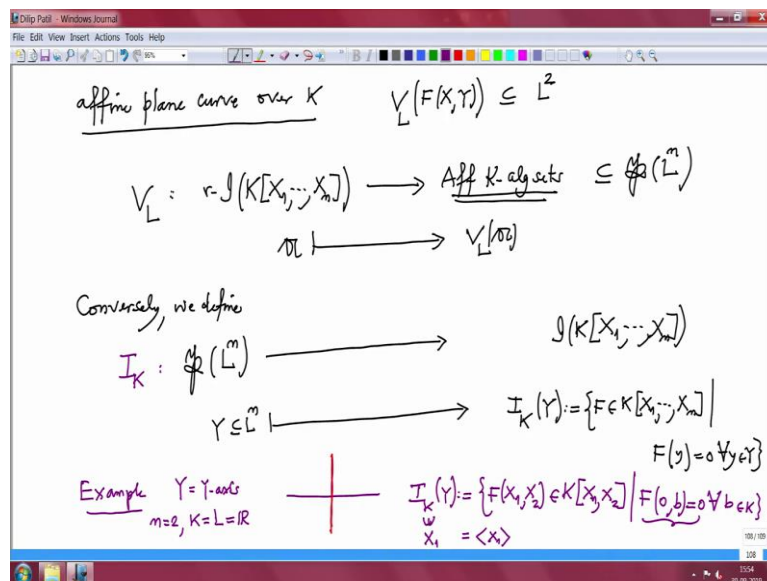 Dilip Patil - Windows Journal
File Edit View Insert Actions Tools Help
96%
affine plane curve over K V_L(F(X,Y)) ⊆ L^2
V_L : r-I(K[X_1,...,X_n]) ⟶ Aff K-alg sets ⊆ 𝔓(L^n)
𝔞 ⟼ V_L(𝔞)
Conversely, we define
I_K : 𝔓(L^n) ⟶ I(K[X_1,...,X_n])
Y ⊆ L^n ⟼ I_K(Y) := {F ∈ K[X_1,...,X_n] |
F(y)=0 ∀ y ∈ Y}
Example Y = Y-axis I_K(Y) := {F(X_1,X_2) ∈ K[X_1,X_2] | F(0,b)=0 ∀ b ∈ K}
n=2, K=L=ℝ X_1 = <X_1>
108/109
108
15:54